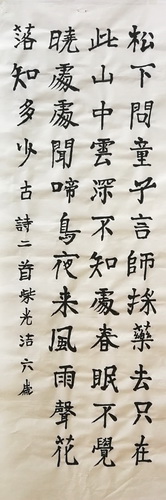 松下問童子言師採藥去只在
此山中雲深不知處春眠不覺
曉處處聞啼鳥夜来風雨聲花
落知多少古詩二首柴光洁六歲